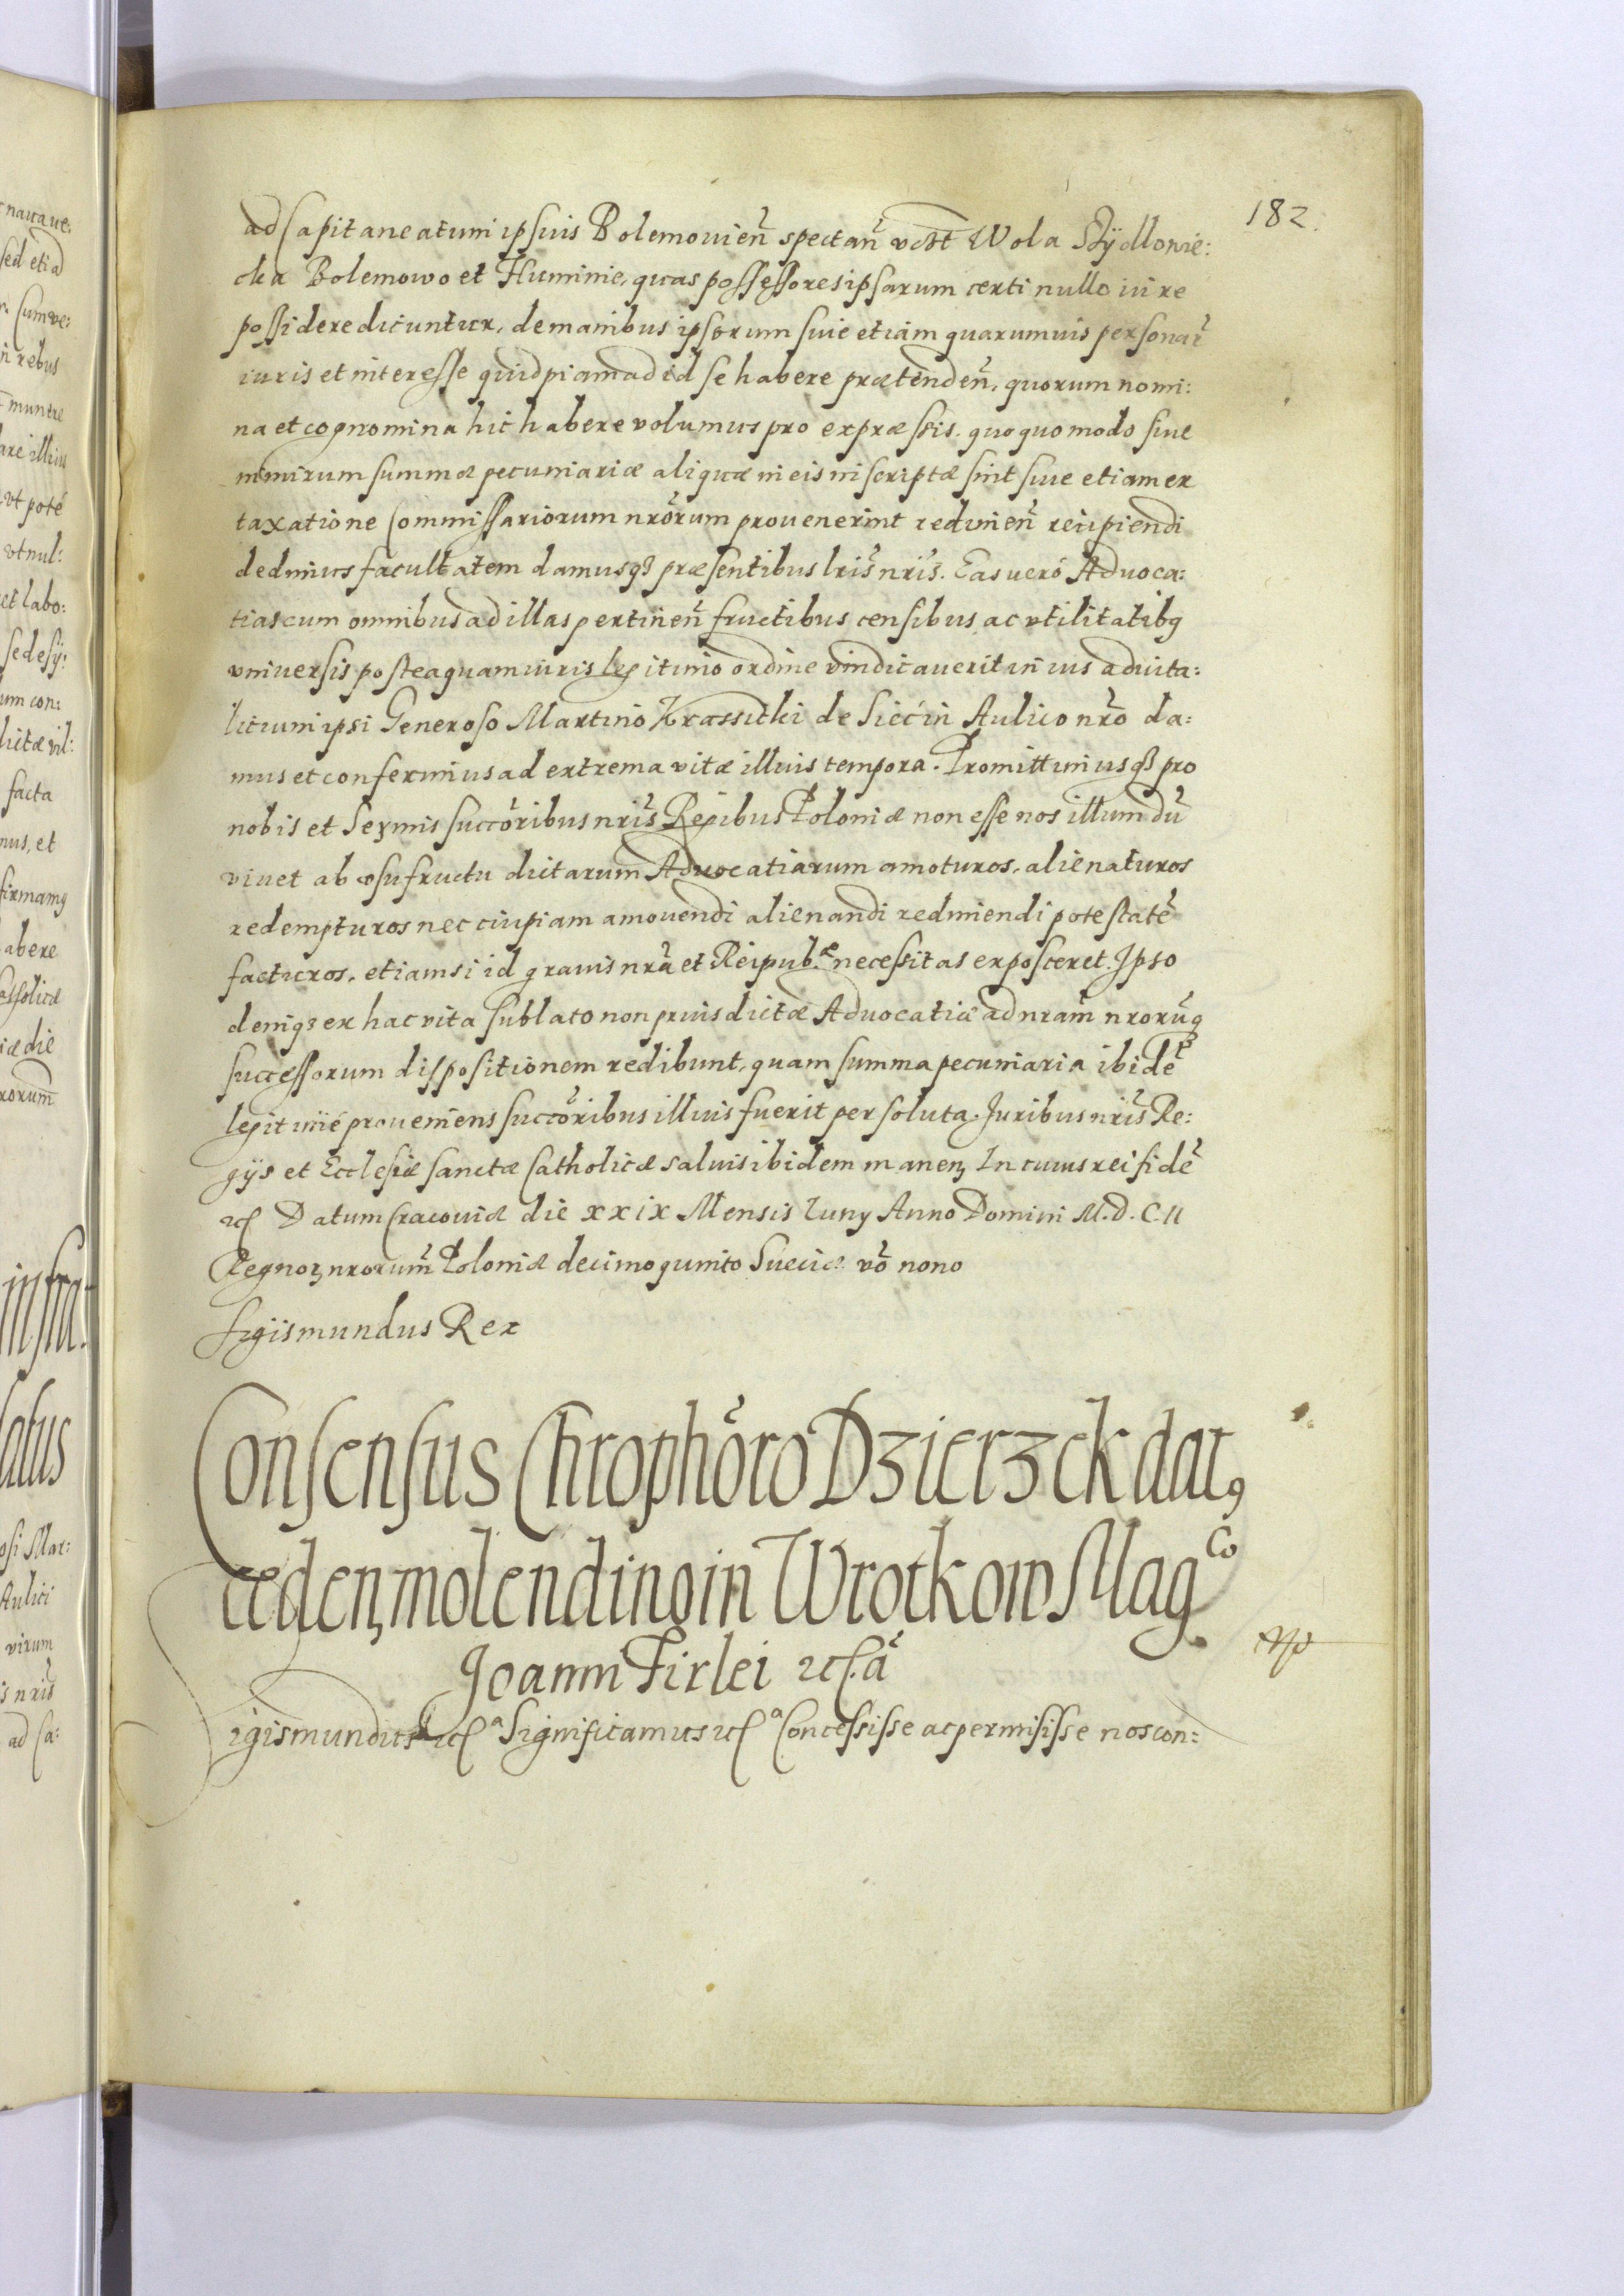 182.
ad Capitaneatum ipsius Bolemouien̄ spectan̄ vdt Wola Szÿdlowie:
cka Bolemowo et Huminie, quas possessores ipsarum certi nullo iure
possidere dicuntur, de manibus ipsorum siue etiam quarumuis personar̄
iuris et interesse quidpiam ad id se habere prætenden̄, quorum nomi:
na et cognomina hic habere volumus pro expræssis. quoquo modo siue
nimirum summæ pecuniariæ aliquæ in eis inscriptæ sint siue etiam ex
taxatione Commissariorum nr̄orum prouenerint redimen̄ recipiendi
dedimus facultatem damusqȝ præsentibus lris nris. Eas uerò Aduoca:
tias cum omnibus ad illas pertinen̄ fructibus censibus ac vtilitatibq
vniuersis posteaquam iuris legitimo ordine vindicauerit in ius aduita:
litium ipsi Generoso Martino Krassicki de Siecin Aulico nr̄o da:
mus et conferimus ad extrema vitæ illius tempora. Promittimusqȝ pro
nobis et Serm̄is succōribus nris Regibus Poloniæ non esse nos illum dū
viuet ab vsufructu dictarum Aduocatiarum amoturos, alienaturos
redempturos nec cuipiam amouendi alienandi redimendi potestatē
facturos, etiamsi id grauis nrā et Reipub.æ necessitas exposceret. Ipso
deniqȝ ex hac vita sublato non prius dictæ Aduocatiæ ad nram̄ nrorūqȝ
successorum dispositionem redibunt, quam summa pecuniaria ibidē
legitimè proueniens succōribus illius fuerit persoluta. Juribus nris Re:
gijs et Ecclesiæ sanctæ Catholicæ saluis ibidem manenȝ In cuius rei fidē
etc Datum Cracouiæ die xxix Mensis Iuny Anno Domini M.D.C.II
Regnorȝ nrorum̄ Poloniæ decimoquinto Sueciæ vō nono
Sigismundus Rex
Consensus Chrophōro Dzierzek dat9
ceden, molendinoin Wrotkow Mag.co
Joanni Firlei etc.ā
Sigismundus etc.a Significamus etc.a Concessisse ac permisisse nos con: